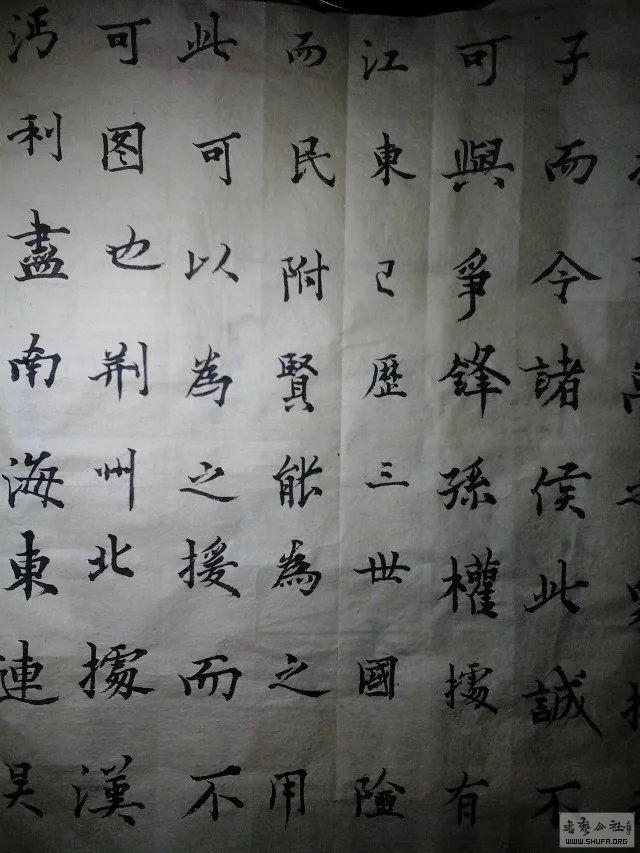 子而令諸侯此誠不
可與爭鋒孫權據有
江東已歷三世國險
而民附賢能為之用
此可以為之援而不
可图也荆州北據漢
沔利盡南海東連吴
書藝公社
WWW.SHUFA.ORG